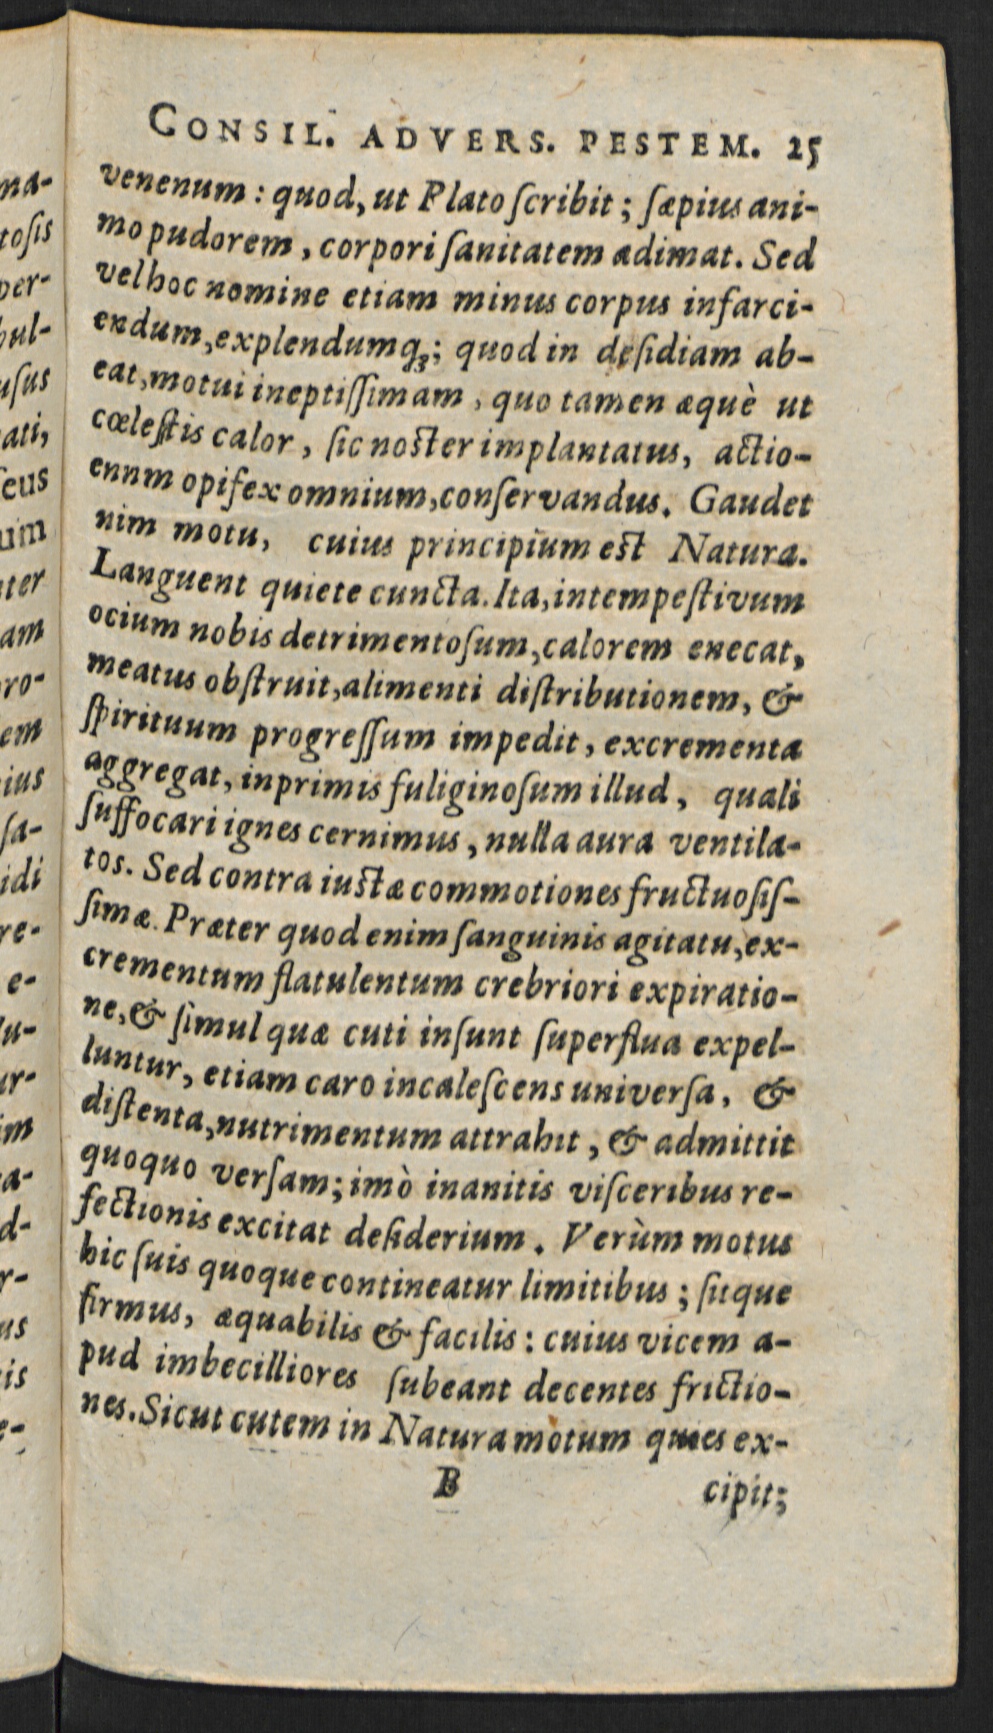 CONSIL. ADVERS. PESTEM. 25
venenum: quod, ut Plato ſcribit; ſæpius ani-
mo pudorem, corpori ſanitatem adimat. Sed
vel hoc nomine etiam minus corpus infarci-
endum, explendumq́;; quod in deſidiam ab-
eat, motui ineptiſſimam, quo tamen æquè ut
cœleſtis calor, ſic noſter implantatus, actio-
ennm opifex omnium, conſervandus. Gaudet
nim motu, cuius principium eſt Natura.
Languent quiete cuncta. Ita, intempeſtivum
ocium nobis detrimentoſum, calorem enecat,
meatus obſtruit, alimenti diſtributionem, &
ſpirituum progreſſum impedit, excrementa
aggregat, inprimis fuliginoſum illud, quali
ſuffocari ignes cernimus, nulla aura ventila-
tos. Sed contra iuſtæ commotiones fructuoſiſ-
ſimæ. Præter quod enim ſanguinis agitatu, ex-
crementum flatulentum crebriori expiratio-
ne, & ſimul quæ cuti inſunt ſuperflua expel-
luntur, etiam caro incaleſcens univerſa, &
diſtenta, nutrimentum attrahit, & admittit
quoquo verſam; imò inanitis viſceribus re-
fectionis excitat deſiderium. Verùm motus
hic ſuis quoque contineatur limitibus; ſitque
firmus, æquabilis & facilis: cuius vicem a-
pud imbecilliores ſubeant decentes frictio-
nes. Sicut cutem in Natura motum quies ex-
B cipit;
ma-
toſis
per-
bul-
uſus
ati,
ſeus
um
ter
am
ro-
em
ius
ſa-
idi
re-
e-
lu-
ur-
im
a-
d-
r-
us
is
e-